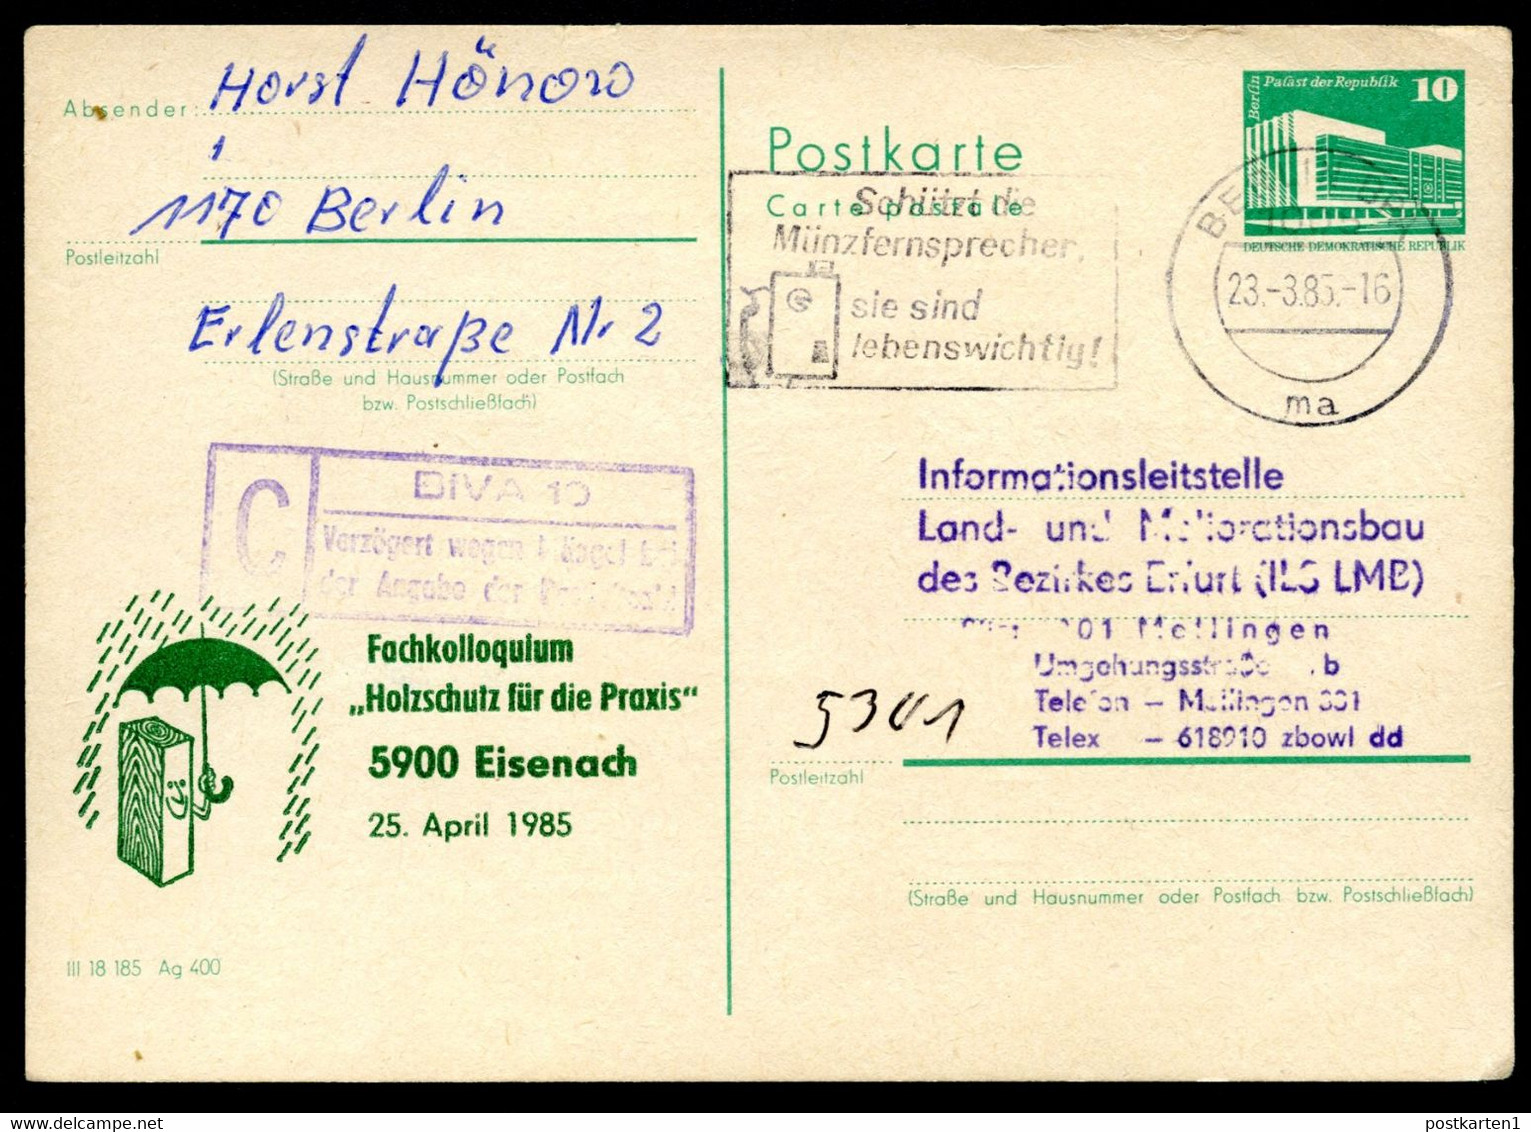 Absender:
Horst Hönow
1170 Berlin
Postleitzahl
Erlenstraße Nr 2
(Straße und Hausnummer oder Postfach
bzw. Postschließfach)
C
BfVA 10
Verzögert wegen
der Angabe der
Fachkolloquium
„Holzschutz für die Praxis“
5900 Eisenach
25. April 1985
III 18 185 Ag 400
Postkarte
Carte postale
Schützt die
Münzfernsprecher,
sie sind
lebenswichtig!
Berlin
Palast der Republik
10
DEUTSCHE DEMOKRATISCHE REPUBLIK
23.-3.85.-16
ma
Informationsleitstelle
Land- und Meliorationsbau
des Bezirkes Erfurt (ILS LMB)
Mellingen
Umgehungsstraße b
Telefon – Mellingen 331
Telex – 618910 zbowl dd
5301
Postleitzahl
(Straße und Hausnummer oder Postfach bzw. Postschließfach)
postkarten1